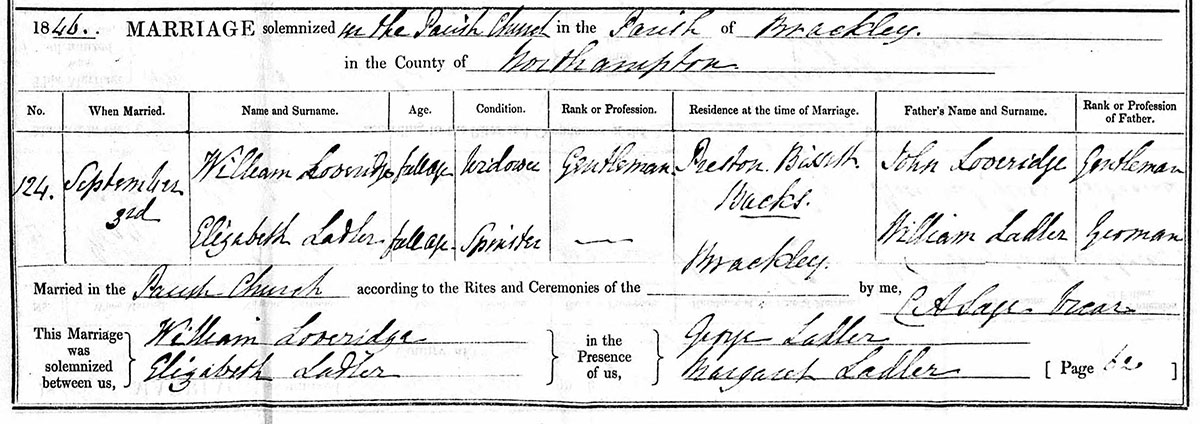 1846. MARRIAGE solemnized in the Parish Church in the Parish of Brackley.
in the County of Northampton
No. When Married. Name and Surname. Age. Condition. Rank or Profession. Residence at the time of Marriage. Father's Name and Surname. Rank or Profession of Father.
124. September 3rd William Loveridge full age Widower Gentleman Preston Bissett Bucks. John Loveridge Gentleman
Elizabeth Ladler full age Spinster — Brackley. William Ladler Yeoman
Married in the Parish Church according to the Rites and Ceremonies of the by me,
C A Sage Vicar
This Marriage was solemnized between us, William Loveridge in the Presence of us, George Ladler
Elizabeth Ladler Margaret Ladler [ Page 62 ]